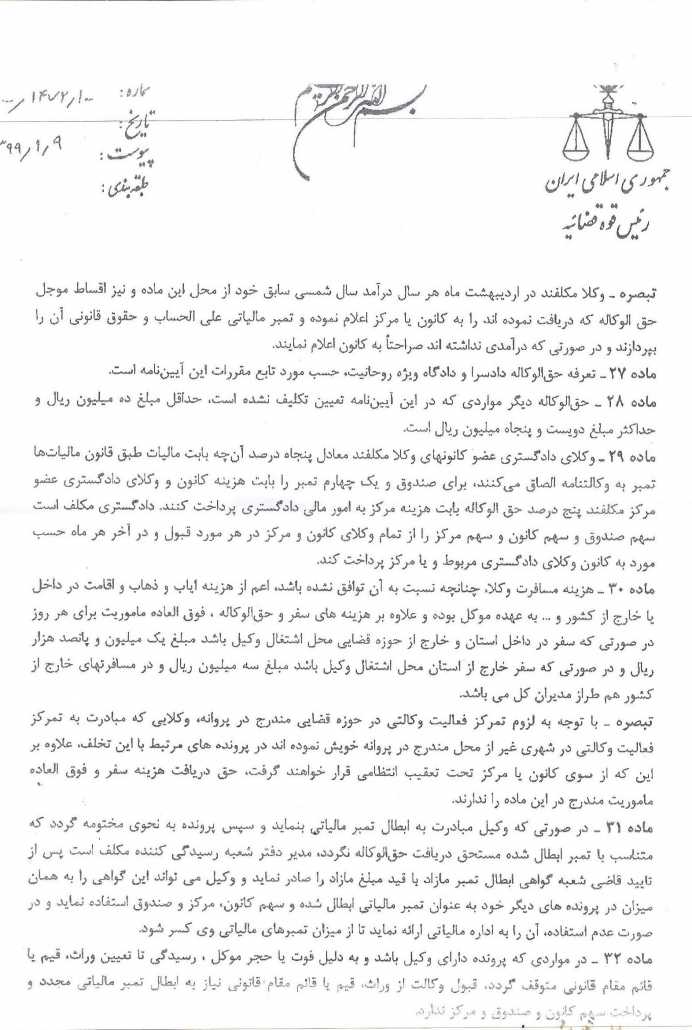 بسم الله الرحمن الرحیم
جمهوری اسلامی ایران
رئیس قوه قضائیه
شماره:
تاریخ:
پیوست:
طبقه بندی:
تبصره ـ وکلا مکلفند در اردیبهشت ماه هر سال درآمد سال شمسی سابق خود از محل این ماده و نیز اقساط موجل
حق الوکاله که دریافت نموده اند را به کانون یا مرکز اعلام نموده و تمبر مالیاتی علی الحساب و حقوق قانونی آن را
بپردازند و در صورتی که درآمدی نداشته اند صراحتاً به کانون اعلام نمایند.
ماده ۲۷ ـ تعرفه حق‌الوکاله دادسرا و دادگاه ویژه روحانیت، حسب مورد تابع مقررات این آیین‌نامه است.
ماده ۲۸ ـ حق‌الوکاله دیگر مواردی که در این آیین‌نامه تعیین تکلیف نشده است، حداقل مبلغ ده میلیون ریال و
حداکثر مبلغ دویست و پنجاه میلیون ریال است.
ماده ۲۹ ـ وکلای دادگستری عضو کانونهای وکلا مکلفند معادل پنجاه درصد آن‌چه بابت مالیات طبق قانون مالیات‌ها
تمبر به وکالتنامه الصاق می‌کنند، برای صندوق و یک چهارم تمبر را بابت هزینه کانون و وکلای دادگستری عضو
مرکز مکلفند پنج درصد حق الوکاله بابت هزینه مرکز به امور مالی دادگستری پرداخت کنند. دادگستری مکلف است
سهم صندوق و سهم کانون و سهم مرکز را از تمام وکلای کانون و مرکز در هر مورد قبول و در آخر هر ماه حسب
مورد به کانون وکلای دادگستری مربوط و یا مرکز پرداخت کند.
ماده ۳۰ ـ هزینه مسافرت وکلا، چنانچه نسبت به آن توافق نشده باشد، اعم از هزینه ایاب و ذهاب و اقامت در داخل
یا خارج از کشور و ... به عهده موکل بوده و علاوه بر هزینه های سفر و حق‌الوکاله ، فوق العاده ماموریت برای هر روز
در صورتی که سفر در داخل استان و خارج از حوزه قضایی محل اشتغال وکیل باشد مبلغ یک میلیون و پانصد هزار
ریال و در صورتی که سفر خارج از استان محل اشتغال وکیل باشد مبلغ سه میلیون ریال و در مسافرتهای خارج از
کشور هم طراز مدیران کل می باشد.
تبصره ـ با توجه به لزوم تمرکز فعالیت وکالتی در حوزه قضایی مندرج در پروانه، وکلایی که مبادرت به تمرکز
فعالیت وکالتی در شهری غیر از محل مندرج در پروانه خویش نموده اند در پرونده های مرتبط با این تخلف، علاوه بر
این که از سوی کانون یا مرکز تحت تعقیب انتظامی قرار خواهند گرفت، حق دریافت هزینه سفر و فوق العاده
ماموریت مندرج در این ماده را ندارند.
ماده ۳۱ ـ در صورتی که وکیل مبادرت به ابطال تمبر مالیاتی بنماید و سپس پرونده به نحوی مختومه گردد که
متناسب با تمبر ابطال شده مستحق دریافت حق‌الوکاله نگردد، مدیر دفتر شعبه رسیدگی کننده مکلف است پس از
تایید قاضی شعبه گواهی ابطال تمبر مازاد با قید مبلغ مازاد را صادر نماید و وکیل می تواند این گواهی را به همان
میزان در پرونده های دیگر خود به عنوان تمبر مالیاتی ابطال شده و سهم کانون، مرکز و صندوق استفاده نماید و در
صورت عدم استفاده، آن را به اداره مالیاتی ارائه نماید تا از میزان تمبرهای مالیاتی وی کسر شود.
ماده ۳۲ ـ در مواردی که پرونده دارای وکیل باشد و به دلیل فوت یا حجر موکل ، رسیدگی تا تعیین وراث، قیم یا
قائم مقام قانونی متوقف گردد، قبول وکالت از وراث، قیم یا قائم مقام قانونی نیاز به ابطال تمبر مالیاتی مجدد و
پرداخت سهم کانون و صندوق و مرکز ندارد.